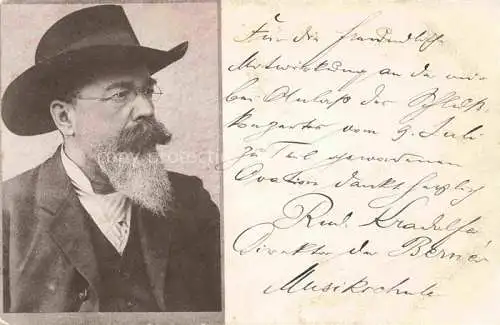 Für die freundliche
Mitwirkung an der mir
bei Anlaß des Schluß-
konzertes vom 9. Juli
zu Teil gewordenen
Ovation dankt herzlich
Rud. Kradolfer
Direktor der Berner
Musikschule